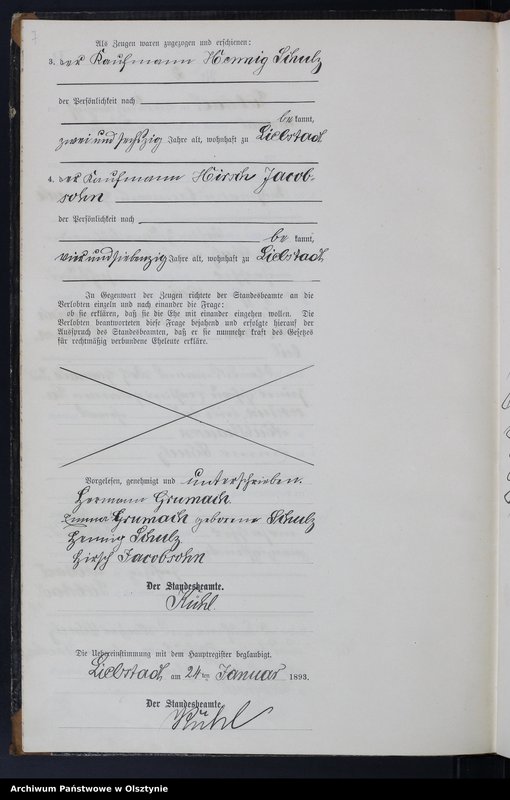 7
Als Zeugen waren zugezogen und erschienen:
3. der Kaufmann Hennig Schulz
der Persönlichkeit nach
be kannt,
zwei und sechszig Jahre alt, wohnhaft zu Liebstadt
4. der Kaufmann Hirsch Jacob-
sohn
der Persönlichkeit nach
be kannt,
vier und siebenzig Jahre alt, wohnhaft zu Liebstadt
In Gegenwart der Zeugen richtete der Standesbeamte an die
Verlobten einzeln und nach einander die Frage:
ob sie erklären, daß sie die Ehe mit einander eingehen wollen. Die
Verlobten beantworteten diese Frage bejahend und erfolgte hierauf der
Ausspruch des Standesbeamten, daß er sie nunmehr kraft des Gesetzes
für rechtmäßig verbundene Eheleute erkläre.
Vorgelesen, genehmigt und unterschrieben.
Hermann Grumach.
Emma Grumach geborene Schulz
Hennig Schulz
Hirsch Jacobsohn
Der Standesbeamte.
Kühl.
Die Uebereinstimmung mit dem Hauptregister beglaubigt.
Liebstadt am 24 ten Januar 1893.
Der Standesbeamte.
Kühl
Archiwum Państwowe w Olsztynie